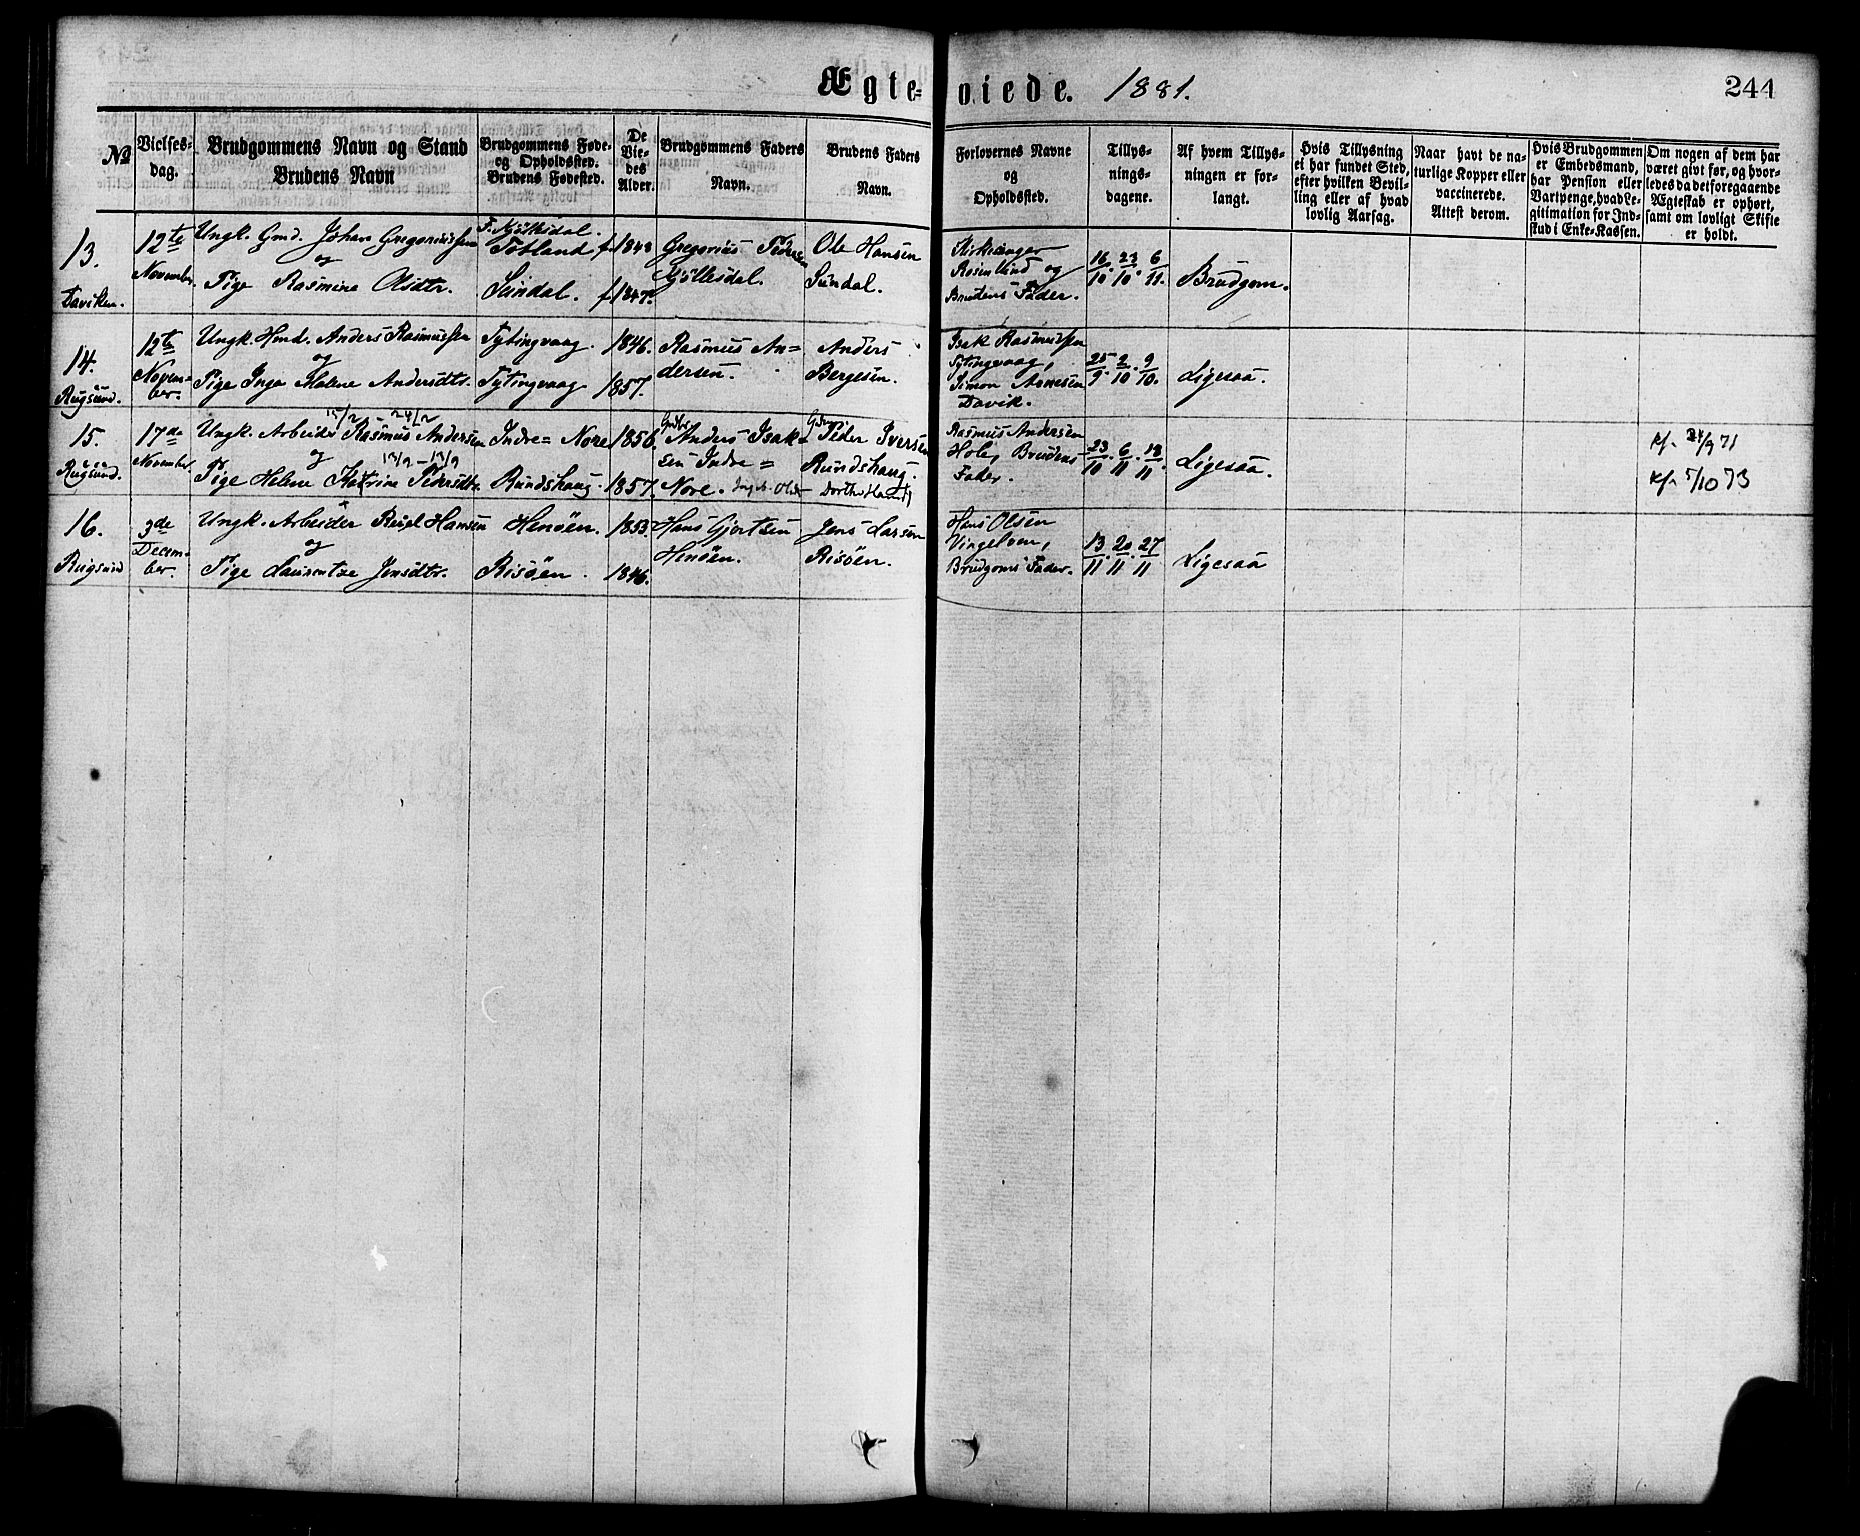 Ægte- viede. 1881. 244
No
Vielses-
dag.
Brudgommens Navn og Stand
Brudens Navn
Brudgommens Føde-
og Opholdssted.
Brudens Fødested.
De
Vie-
des
Alder.
Brudgommens Faders
Navn.
Brudens Faders
Navn.
Forlovernes Navne
og
Opholdssted.
Tillys-
nings-
dagene.
Af hvem Tillys-
ningen er for-
langt.
Hvis Tillysning
ei har fundet Sted,
efter hvilken Bevil-
ling eller af hvad
lovlig Aarsag.
Naar havt de na-
turlige Kopper eller
vaccinerede.
Attest derom.
Hvis Brudgommen
er Embedsmand,
har Pension eller
Vartpenge, hvad Le-
gitimation for Ind-
skud i Enke-Kassen.
Om nogen af dem har
været givt før, og hvor-
ledes da det foregaaende
Ægteskab er ophørt,
samt om lovligt Skifte
er holdt.
13.
Daviken.
12te
November.
Ungk. Gmd. Johan Gregoriussen
og
Pige Rasmine Olsdtr.
F. Myklesdal.
Tobland
Sundal.
f. 1848
f. 1847.
Gregorius Pedersen
Ole Hansen
Sundal.
Kirkesanger
Rosenlind og
Brudens Fader.
16/10. 23/10. 6/11.
Brudgom.
14.
Rugsund.
12te
Novem=
ber.
Ungk. Hmd. Anders Rasmussen
og
Pige Inga Malene Andersdtr.
Tytingvaag.
Tytingvaag
1846.
1857.
Rasmus An=
dersen.
Anders
Bergesen.
Isak Rasmussen
Tytingvaag,
Simon Arnesen
Davik.
25/9. 2/10. 9/10.
Ligesaa.
15.
Rugsund.
17de
November.
15/2 - 24/2
Ungk. Arbeider Rasmus Andersen
og
13/9 - 13/9
Pige Helene Katrine Pedersdtr.
Indre= Nore
Rundshaug.
1856.
1857.
Anders Isak=
sen Indre=
Nore. Ingeb. Olsdtr
Peder Iversen
Rundshaug.
Rasmus Andersen
Hole, Brudens
Fader.
23/10. 6/11. 13/11.
Ligesaa.
Kf. 24/9 71
Kf. 5/10 73
16.
Rugsund
3de
Decem=
ber.
Ungk. Arbeider Rupl Hansen
og
Pige Laurentze Jensdtr.
Henøen.
Risøen.
1853.
1846.
Hans Gjertsen
Henøen.
Jens Larsen
Risøen.
Hans Olsen
Vingelven,
Brudgoms Fader.
13/11. 20/11. 27/11
Ligesaa